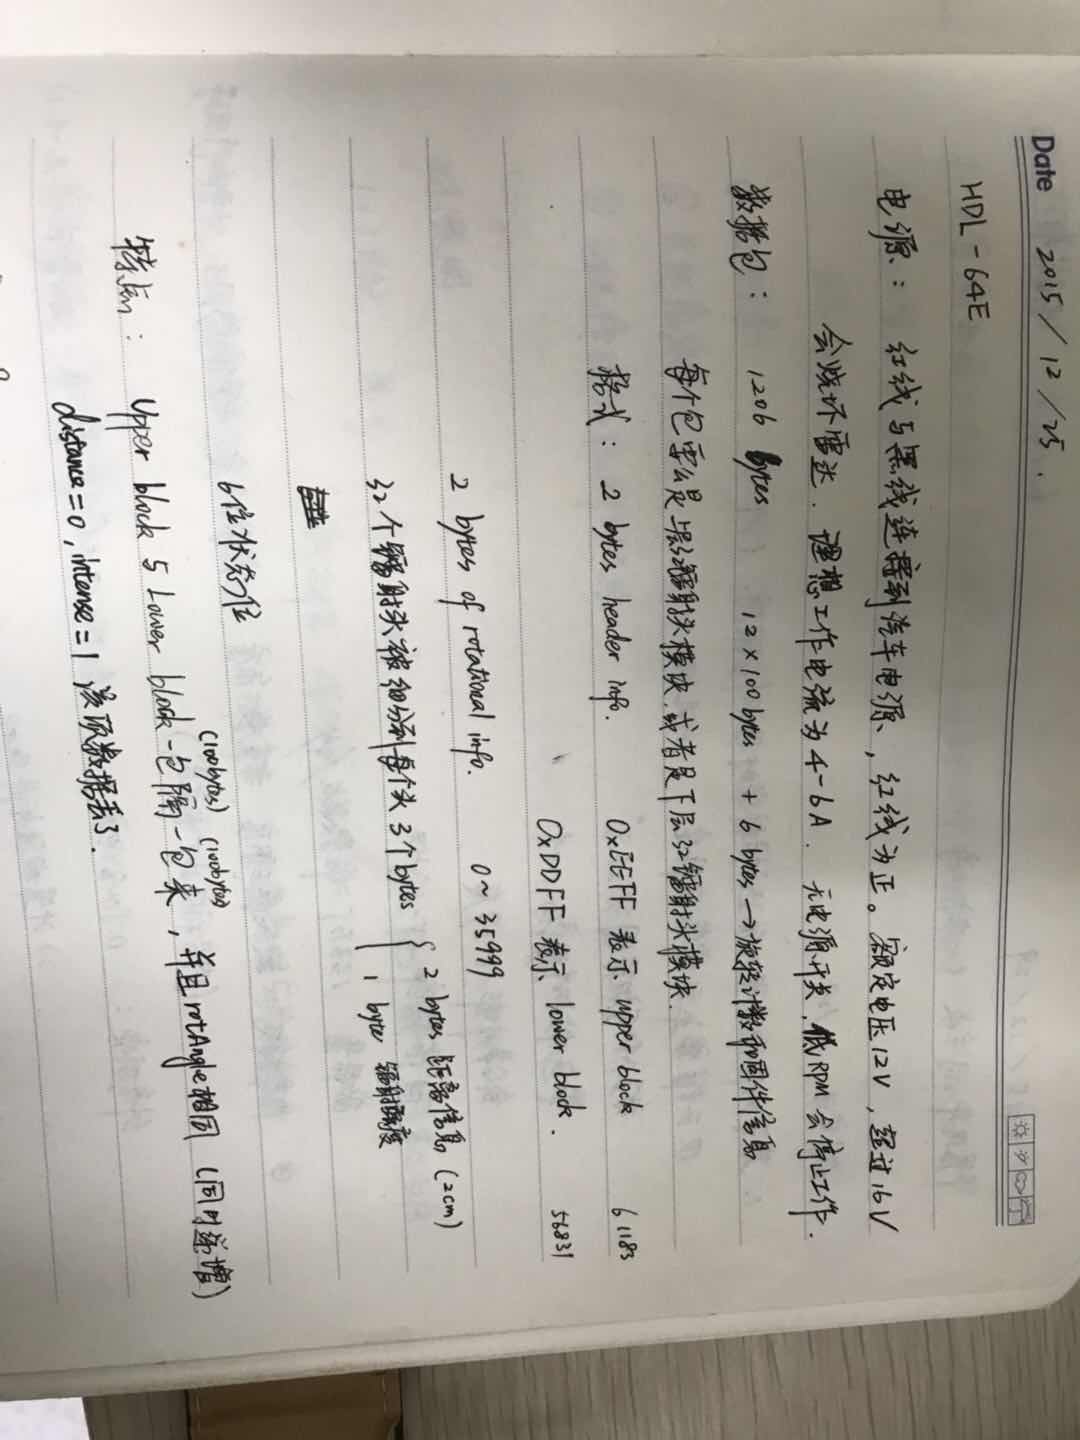 Date 2015/12/25.
HDL-64E
电源: 红线与黑线连接到汽车电源, 红线为正。额定电压12V, 超过16V
会烧坏雷达. 理想工作电流为4-6A. 无电源开关, 低RPM会停止工作.
数据包: 1206 bytes 12×100bytes + 6 bytes → 旋转计数和固件信息
每个包要么是上层32镭射头模块, 或者是下层32镭射头模块.
格式: 2 bytes header info. 0xEEFF 表示 upper block 61183
0xDDFF 表示 lower block. 56831
2 bytes of rotational info. 0~35999
32个镭射头被细分到每个头3个bytes { 2 bytes 距离信息 (2cm)
1 byte 镭射强度
6位状态位
(100bytes) (100bytes)
特点: Upper block 与 Lower block 一包隔一包来, 并且rotAngle相同 (同时递增)
distance=0, intense=1 该项数据丢了.